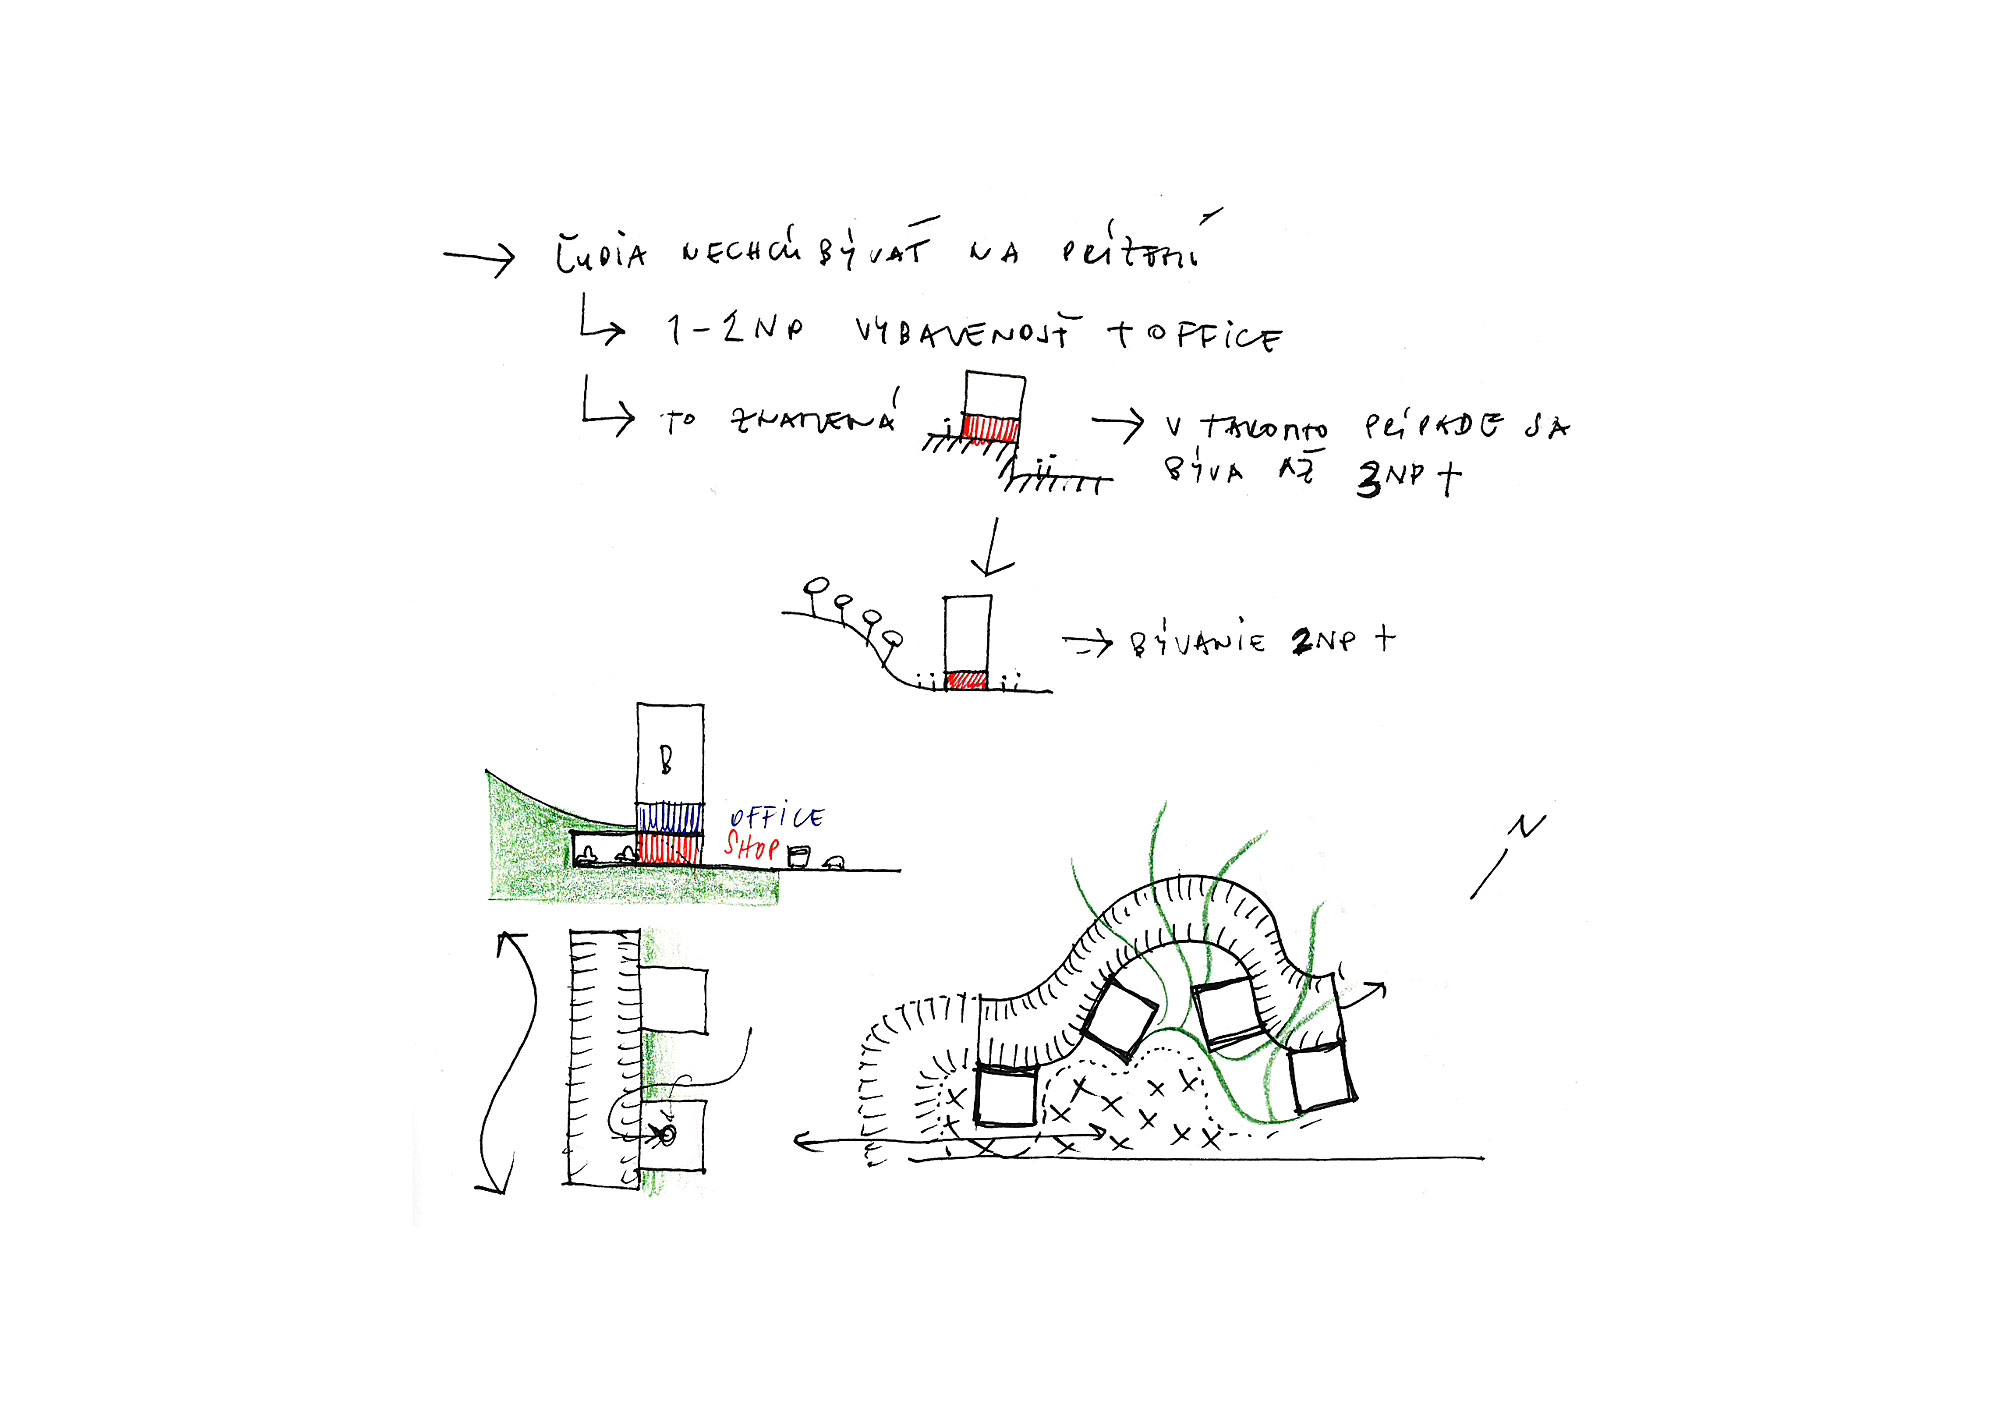 ĽUDIA NECHCÚ BÝVAŤ NA PRÍZEMÍ
1-2NP VYBAVENOSŤ + OFFICE
TO ZNAMENÁ
V TAKOMTO PRÍPADE SA
BÝVA AŽ 3NP +
BÝVANIE 2NP +
B
OFFICE
SHOP
N